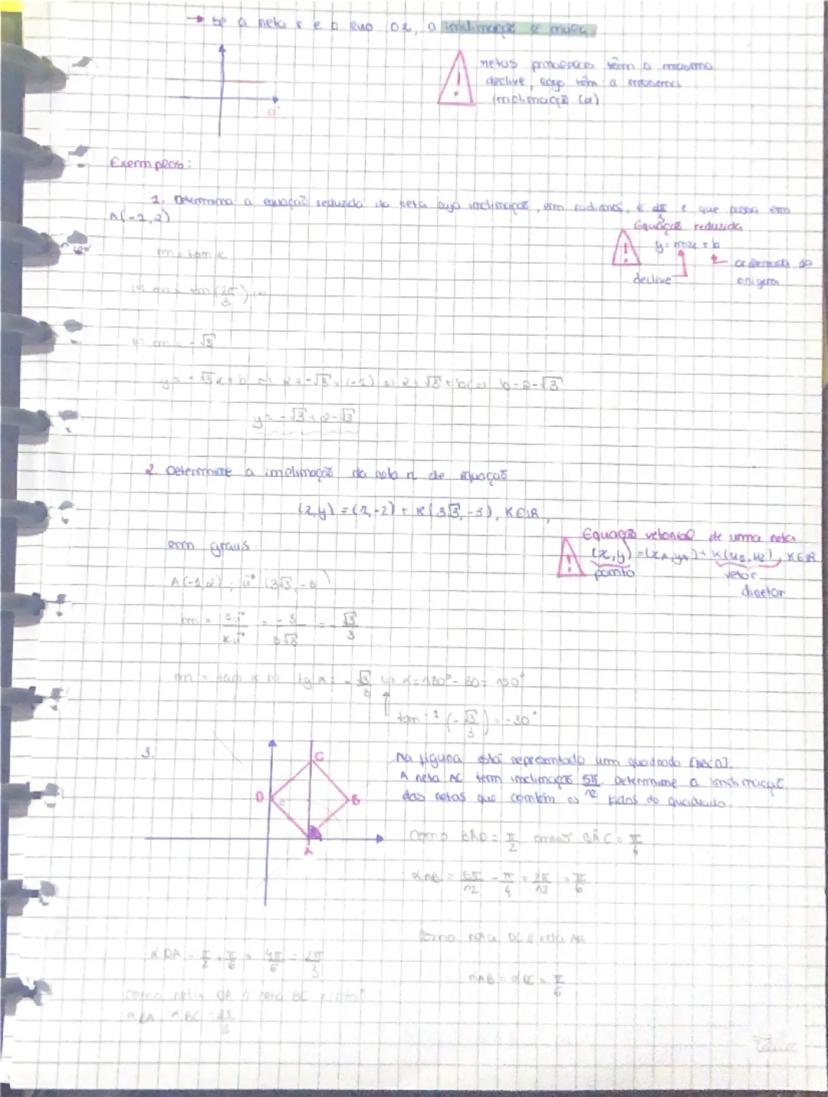 → Se a reta r e o eixo Ox, a inclinação é nula.
retas paralelas têm o mesmo
declive, logo têm a mesma
inclinação (α)
Exemplos:
1. Determina a equação reduzida da reta cuja inclinação, em radianos, é 2π/3 e que passa em
A(-1,2)
Equação reduzida
y = mx + b
ordenada na
declive
origem
m = tan α
m = -√3
y = -√3x + b
b = 2-√3
y = -√3 + 2-√3
2. Determine a inclinação da reta r de equação
(x,y) = (1,-2) + K(3√3,-3), K∈ℝ,
em graus.
Equação vetorial de uma reta
(x,y) = (xA,yA) + K(u1,u2), K∈ℝ
ponto vetor
diretor
A(-1,2)
(3√3,-3)
m = = -3/3√3 = -√3/3
m = tan α tg α = -√3/3 α = 180° - 30 = 150°
tan⁻¹(-√3/3) = -30°
3.
C
D
B
A
Na figura está representado um quadrado [ABCD].
A reta AC tem inclinação 5π/12. Determine a inclinação
das retas que contêm os lados do quadrado.
Como BÂD = π/2 então BÂC = π/4
αAB = 5π/12 - π/4 = 2π/12 = π/6
Como reta DC // reta AB
αAB = αDC = π/6
αDA = π/2 + π/6 = 4π/6 = 2π/3
Como reta DA // reta BC